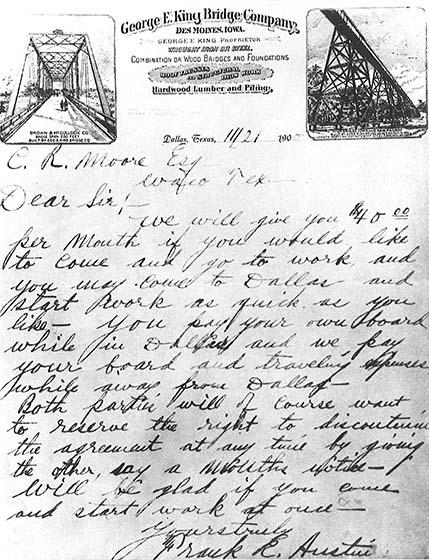 George E. King Bridge Company,
DES MOINES, IOWA.
GEORGE E KING PROPRIETOR
WROUGHT IRON OR STEEL,
COMBINATION OR WOOD BRIDGES AND FOUNDATIONS
ROOF TRUSSES AND STRUCTURAL IRON WORK
Hardwood Lumber and Piling.
BROWN & McCULLOCH CO
BRIDGE SPAN 250 FEET
BUILT BY GEO. E. KING BRIDGE CO
Dallas, Texas, 11/21 190
C. R. Moore Esq
Waco Tex
Dear Sir;
We will give you $40 00
per Month if you would like
to come and go to work and
you may come to Dallas and
start work as quick as you
like — you pay your own board
while in Dallas and we pay
your board and traveling expenses
while away from Dallas —
Both parties will of course want
to reserve the right to discontinue
the agreement at any time by giving
the other, say a months notice —
Will be glad if you come
and start work at once —
Yours truly
Frank E. Austin